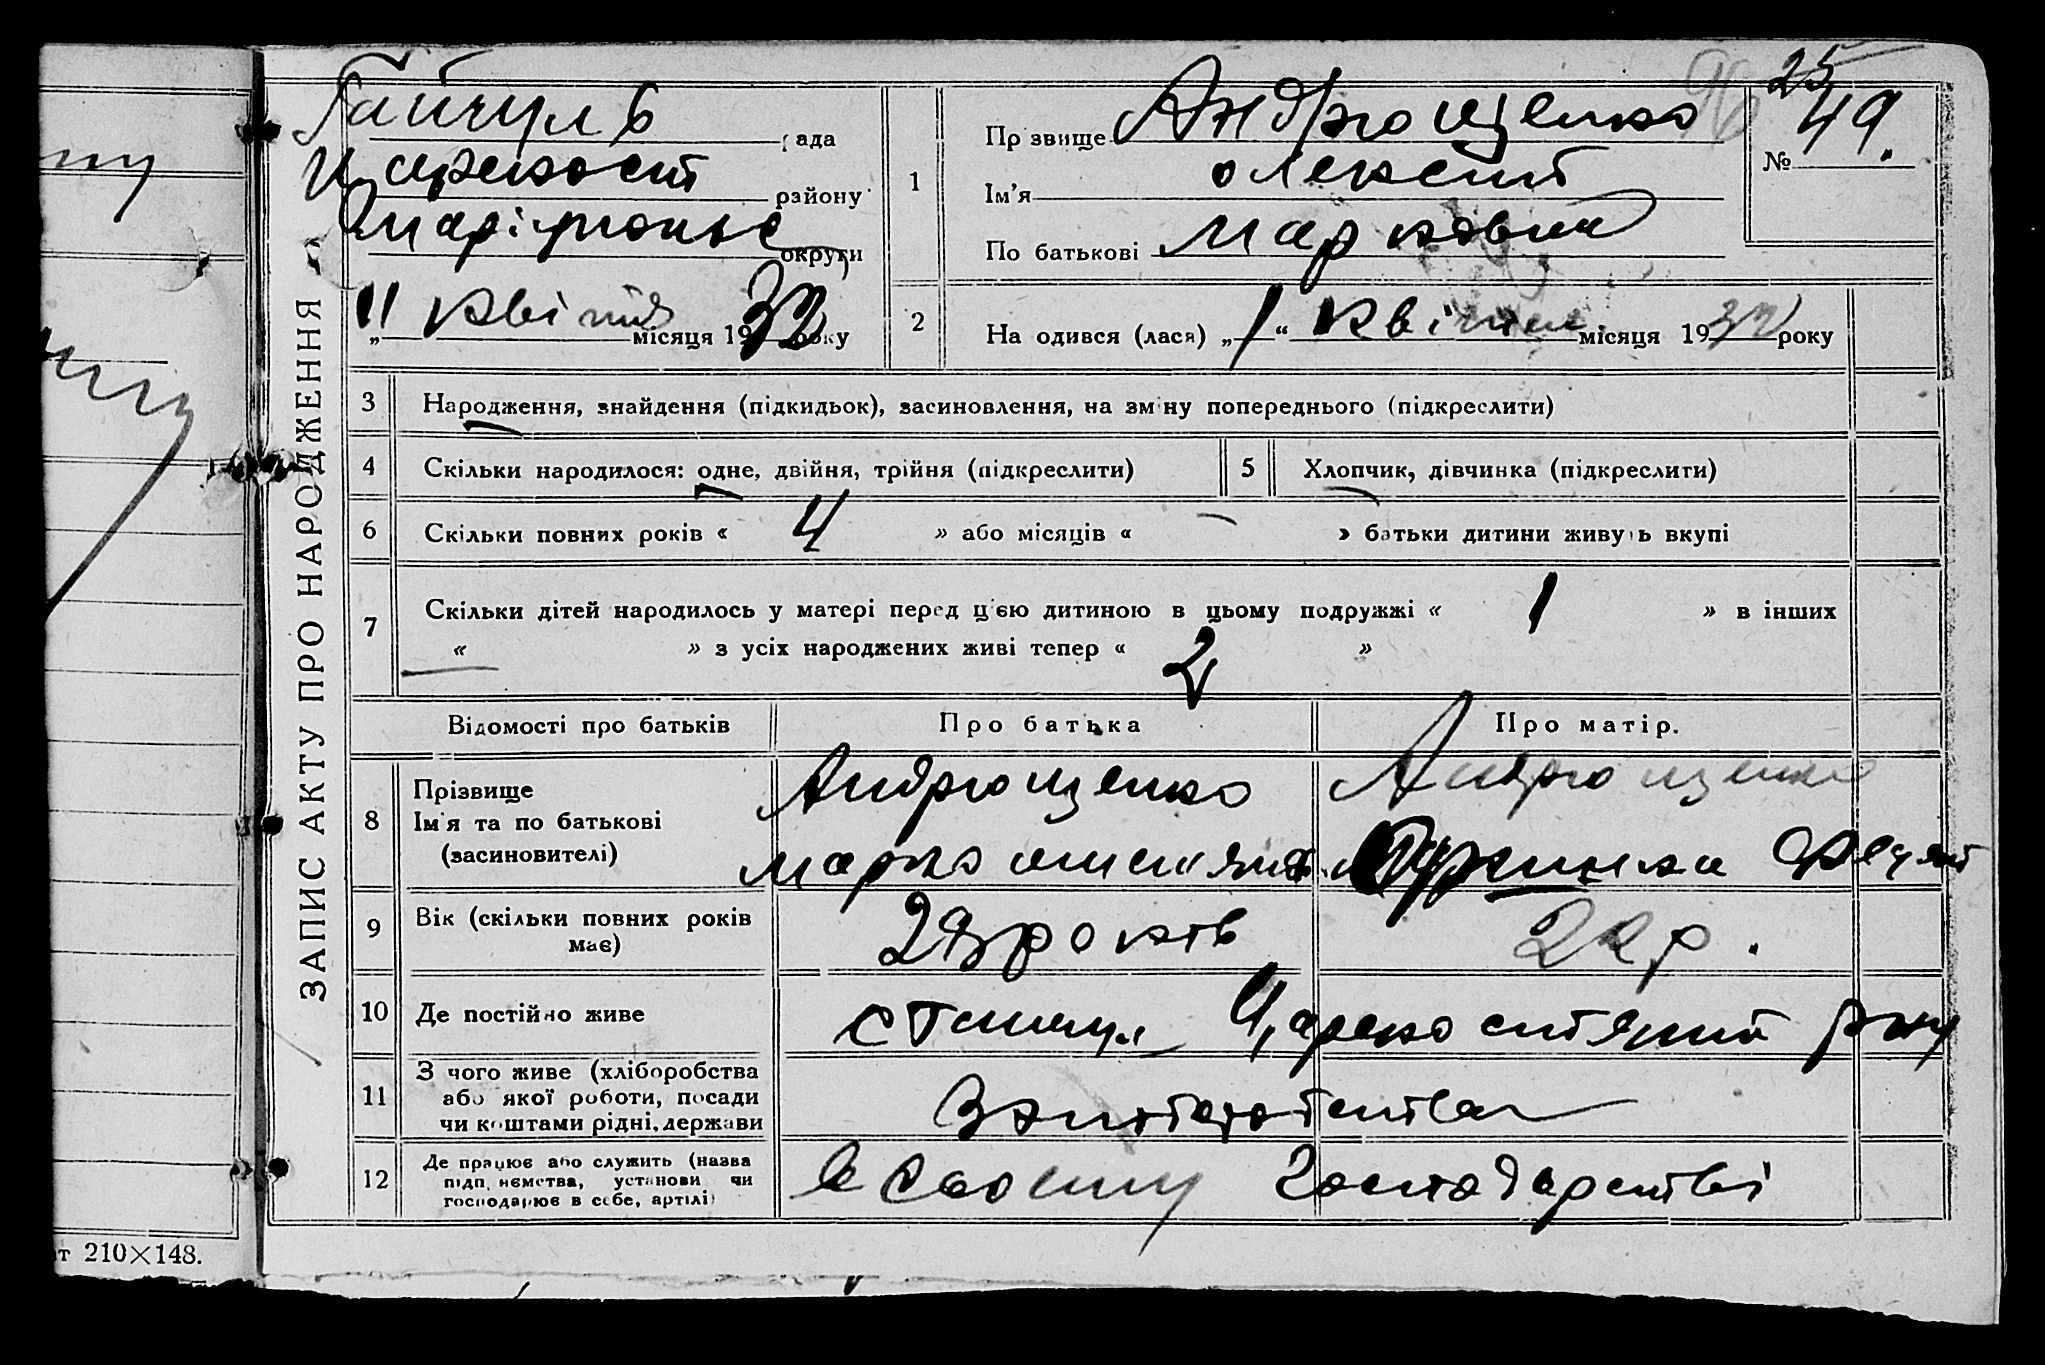 25
96
49.
№
Гайчуль рада
Царекост району
Маріупольс округи
„11 квітня місяця 1930 року
1
Прізвище Андрющенко
Ім’я Олексій
По батькові Маркович
2
На одився (лася) „1“ квітня місяця 1930 року
ЗАПИС АКТУ ПРО НАРОДЖЕННЯ
3 Народження, знайдення (підкидьок), засиновлення, на зміну попереднього (підкреслити)
4 Скільки народилося: одне, двійня, трійня (підкреслити)
5 Хлопчик, дівчинка (підкреслити)
6 Скільки повних років « 4 » або місяців « — » батьки дитини живуть вкупі
7 Скільки дітей народилось у матері перед цією дитиною в цьому подружжі « 1 » в інших
« — » з усіх народжених живі тепер « 2 »
Відомості про батьків
Про батька
Про матір.
8 Прізвище
Ім’я та по батькові
(засиновителі)
Андрющенко
Марко
Андрющенко
9 Вік (скільки повних років
має)
років
р.
10 Де постійно живе
11 З чого живе (хліборобства
або якої роботи, посади
чи коштами рідні, держави
12 Де працює або служить (назва
підприємства, установи чи
господарює в себе, артілі)
в своєму господарстві
т 210×148.